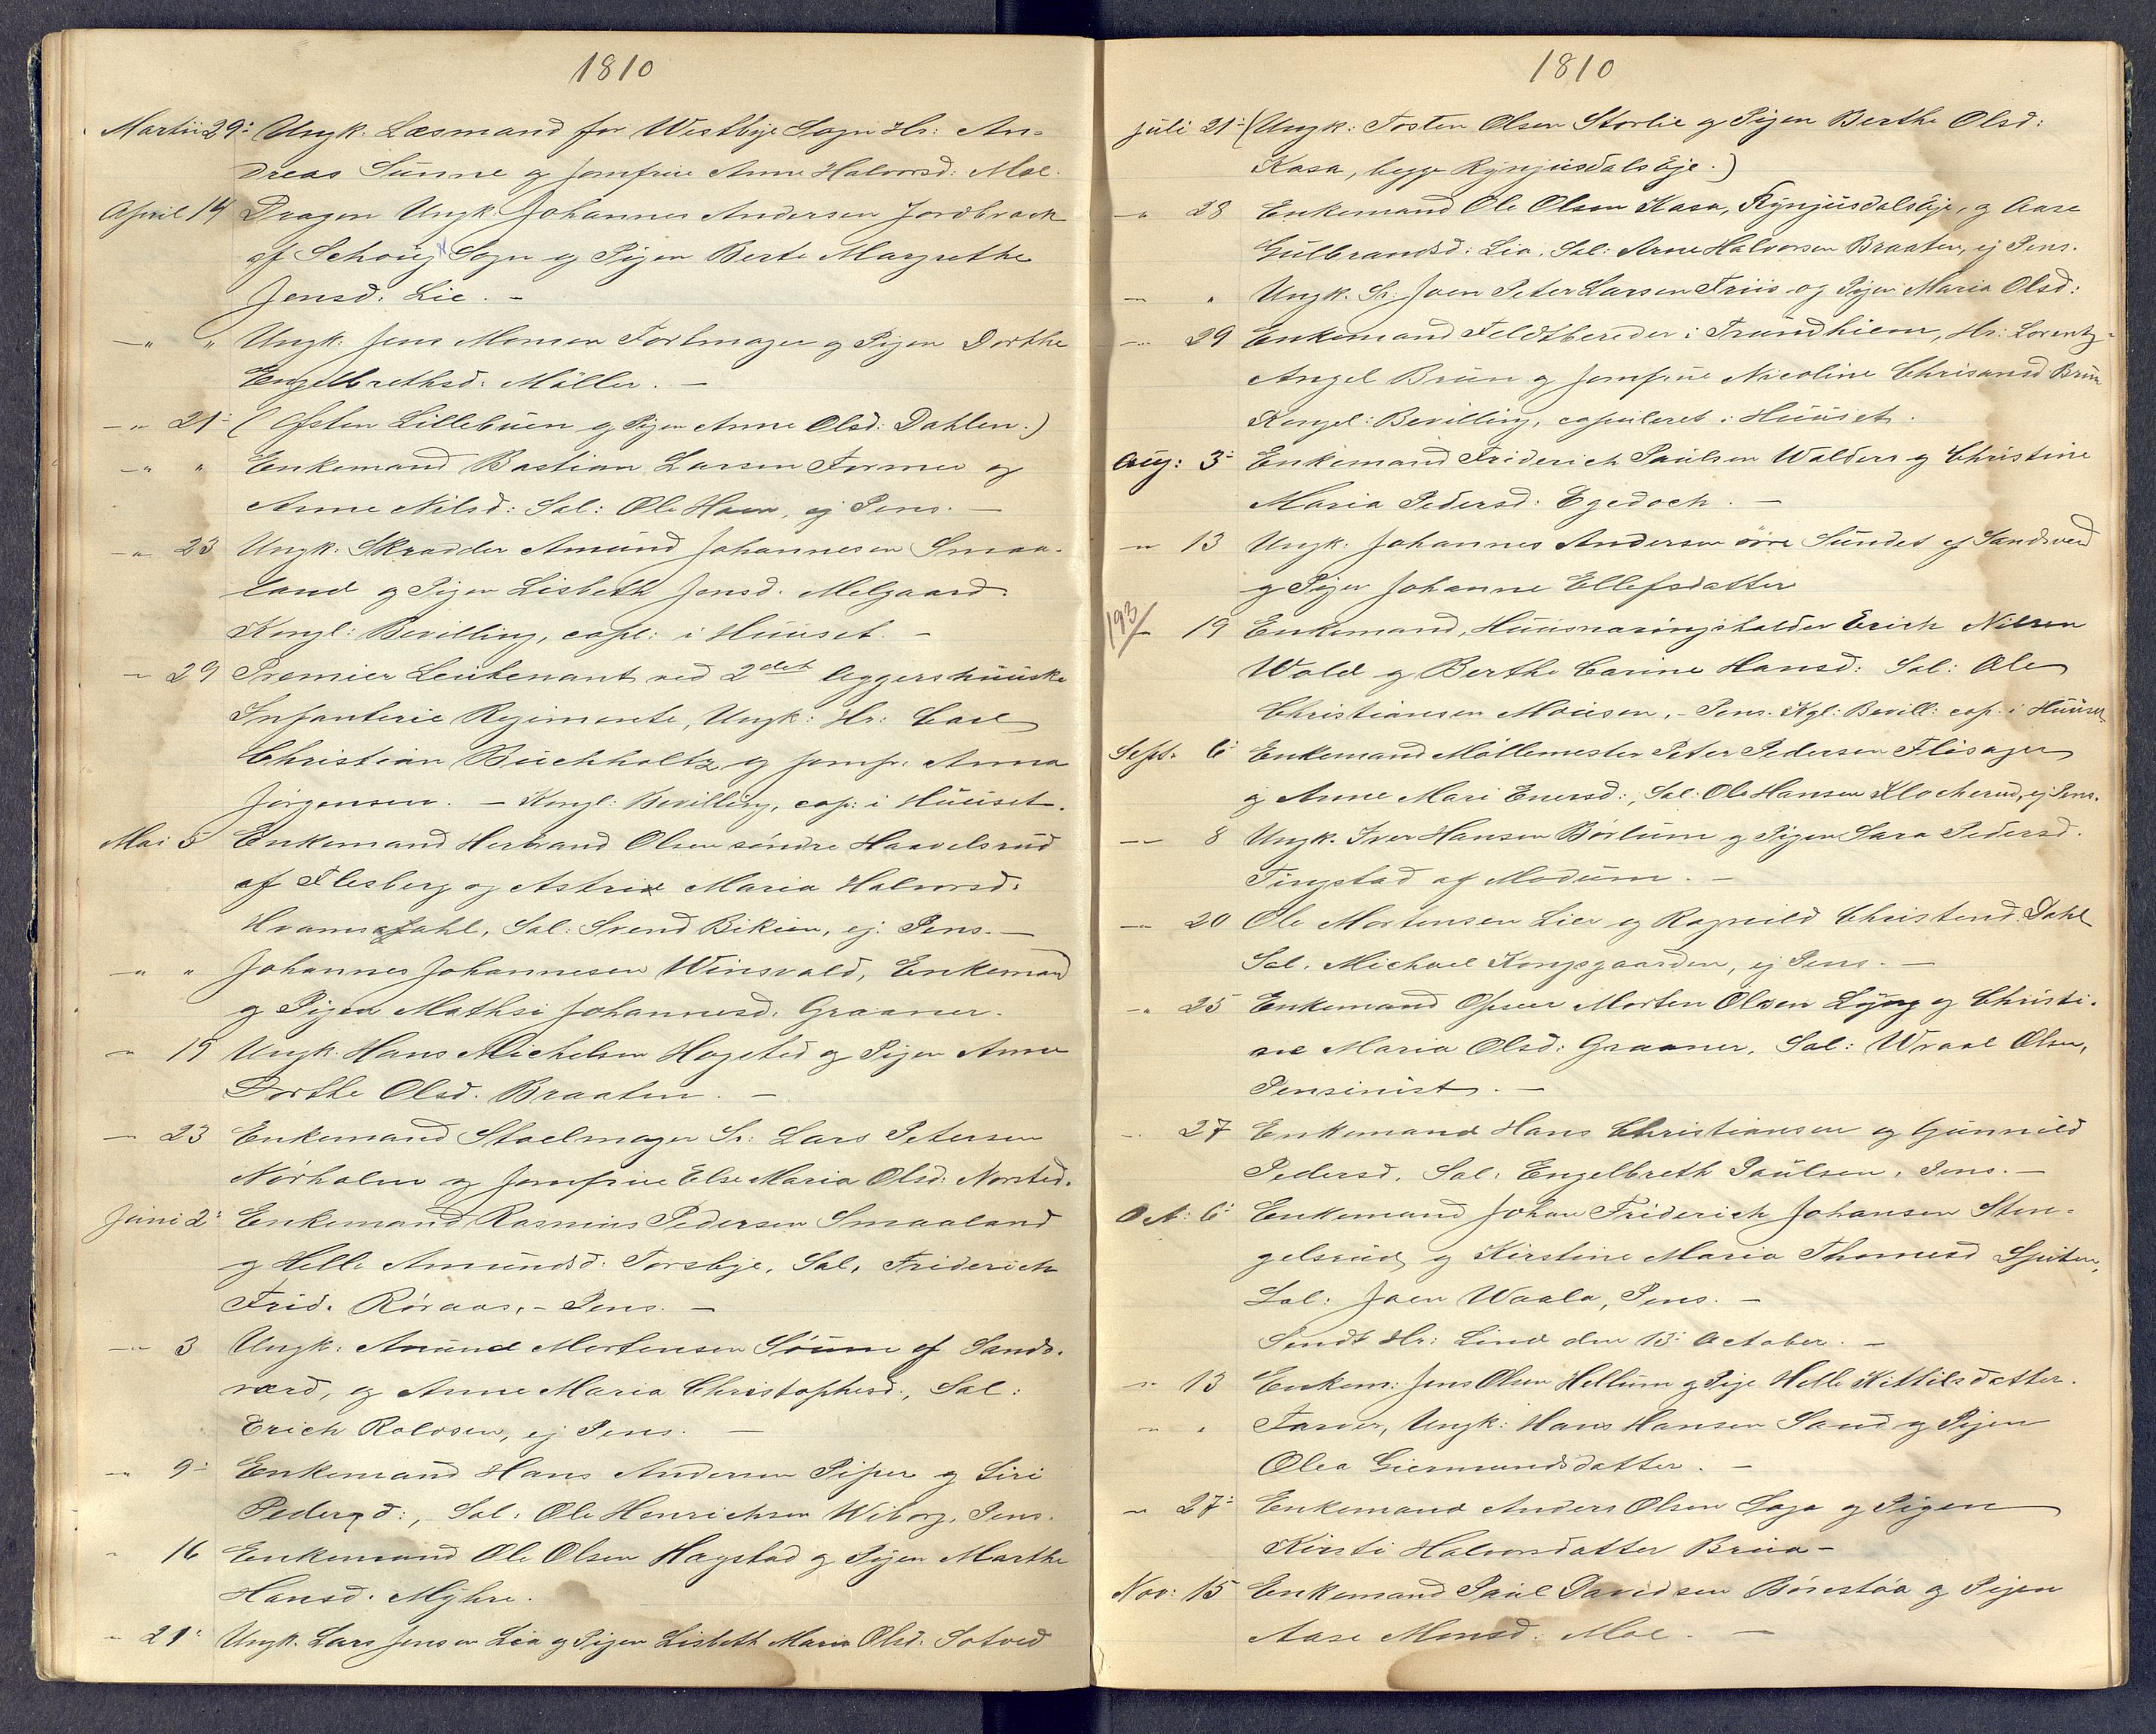 1810
Martii 29: Ungk. Læsmand for Westbye Sogn Hr: An-
dreas Sunne og Jomfrue Anne Halvorsd: Moe.
April 14 Dragon Ungk. Johannes Andersen Jordbræck
af Schoug Sogn og Pigen Berte Margrethe
Jensd: Lie. -
-" " Ungk: Jens Monsen Forlmager og Pigen Dorthe
Engelbrethsd: Möller. -
-" 21: (Østen Lillebuen og Pigen Anne Olsd: Dahlen.)
-" " Enkemand Bastian Larsen Former og
Anne Nilsd: Sal: Ole Haun, ej Pens. -
-" 23 Ungk. Skrædder Amund Johannesen Smaa-
land og Pigen Lisbeth Jensd. Melgaard.
Kongl: Bevilling, copl: i Huuset. -
-" 29 Premier Leutenant ved 2det Aggershuuske
Infanterie Regimente, Ungk: Hr: Carl
Christian Buchholtz og Jomfr: Anna
Jörgensen. - Kongl: Bevilling, cop: i Huuset.
Mai 5 Enkemand Herbrand Olsen söndre Haavelsrud
af Flesberg og Astrie Maria Halvorsd:
Sal: Svend Bikien, ej: Pens. -
-" " Johannes Johannesen Winsvald, Enkemand
og Pigen Mathsi Johannesd. Graaner.
-" 19 Ungk: Hans Michelsen Hagsted og Pigen Anne
Dorthe Olsd. Braaten. -
-" 23 Enkemand Stoelmager Sr: Lars Petersen
Nörholm og Jomfrue Else Maria Olsd: Norsted.
Juni 2: Enkemand Rasmus Pedersen Smaaland
og Helle Amundsd: Forsbye, Sal, Friderich
Frid. Röraas, - Pens. -
-" 3 Ungk: Amund Mortensen Söum af Sands-
værd, og Anne Maria Christophersd:, Sal:
Erich Rolvsen, ej Pens. -
-" 9: Enkemand Hans Andersen Piper og Siri
Pedersd:, Sal: Ole Henrichsen Wiborg, Pens.
-" 16 Enkemand Ole Olsen Hagstad og Pigen Marthe
Hansd. Myhre.
-" 21: Ungk. Lars Jensen Lia og Pigen Lisbeth Maria Olsd. Sotved
1810
Juli 21: (Ungk: Tosten Olsen Storlie og Pigen Berthe Olsd:
Kasa, begge Rynjusdals Eje.)
-" 28 Enkemand Ole Olsen Kasa, Rynjusdals Eje, og Aase
Gulbrandsd: Lia, Sal: Arne Halvorsen Braaten, ej Pens.
-" " Ungk. Sr: Joen Peter Larsen Friis og Pigen Maria Olsd:
-" 29 Enkemand Feldtbereder i Trundhiem, Hr: Lorentz
Angel Brun og Jomfrue Nicoline Chrisansd Brun
Kongel: Bevilling, copuleret i Huuset.
Aug: 3: Enkemand Friderich Paulsen Walders og Christine
Maria Pedersd: Egedoch. -
-" 13 Ungk: Johannes Andersen övre Sundet af Sandsverd
og Pigen Johanne Ellefsdatter
193/ - 19 Enkemand, Huusnæringsholder Erich Nilsen
Wold og Berthe Carine Hansd: Sal: Ole
Christiansen Mousen, - Pens. Kgl: Bevill: cop: i Huuset
Sept. 6: Enkemand Möllemester Peter Pedersen Flisager
og Anne Mari Enersd:, Sal: Ole Hansen Klocherud, ej Pens.
-" 8 Ungk. Iver Hansen Börlum og Pigen Sara Pedersd.
Tingstad af Modum. -
-" 20 Ole Mortensen Lier og Ragnild Christensd. Dahl
Sal. Michael Kongsgaarden, ej Pens. -
-" 25 Enkemand Opseer Morten Olsen Lyng og Christi-
ne Maria Olsd: Graaner, Sal: Wraal Olsen,
Pensinist. -
-" 27 Enkemand Hans Christiansen og Gunnild
Pedersd, Sal: Engelbreth Paulsen, Pens. -
Oct: 6: Enkemand Johan Friderich Johansen Sten-
gelsrud og Kirstine Maria Thomesd Spiten,
Sal: Joen Waala, Pens. -
Sendt Hr: Lind den 13: October. -
-" 13 Enkem: Jens Olsen Hellum og Pige Helle Kittilsdatter.
-" " Farver, Ungk: Hans Hansen Sand og Pigen
Olea Giermundsdatter. -
-" 27: Enkemand Anders Olsen Saga og Pigen
Kirsti Halvorsdatter Brua -
Nov: 15 Enkemand Paul Davidsen Börestöa og Pigen
Aase Monsd: Moe. -